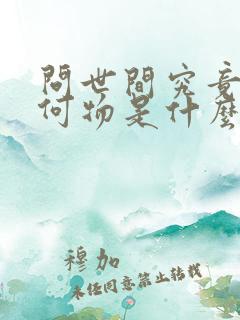 問世間究竟
何物是什麼
穆加
未經同意禁止转载